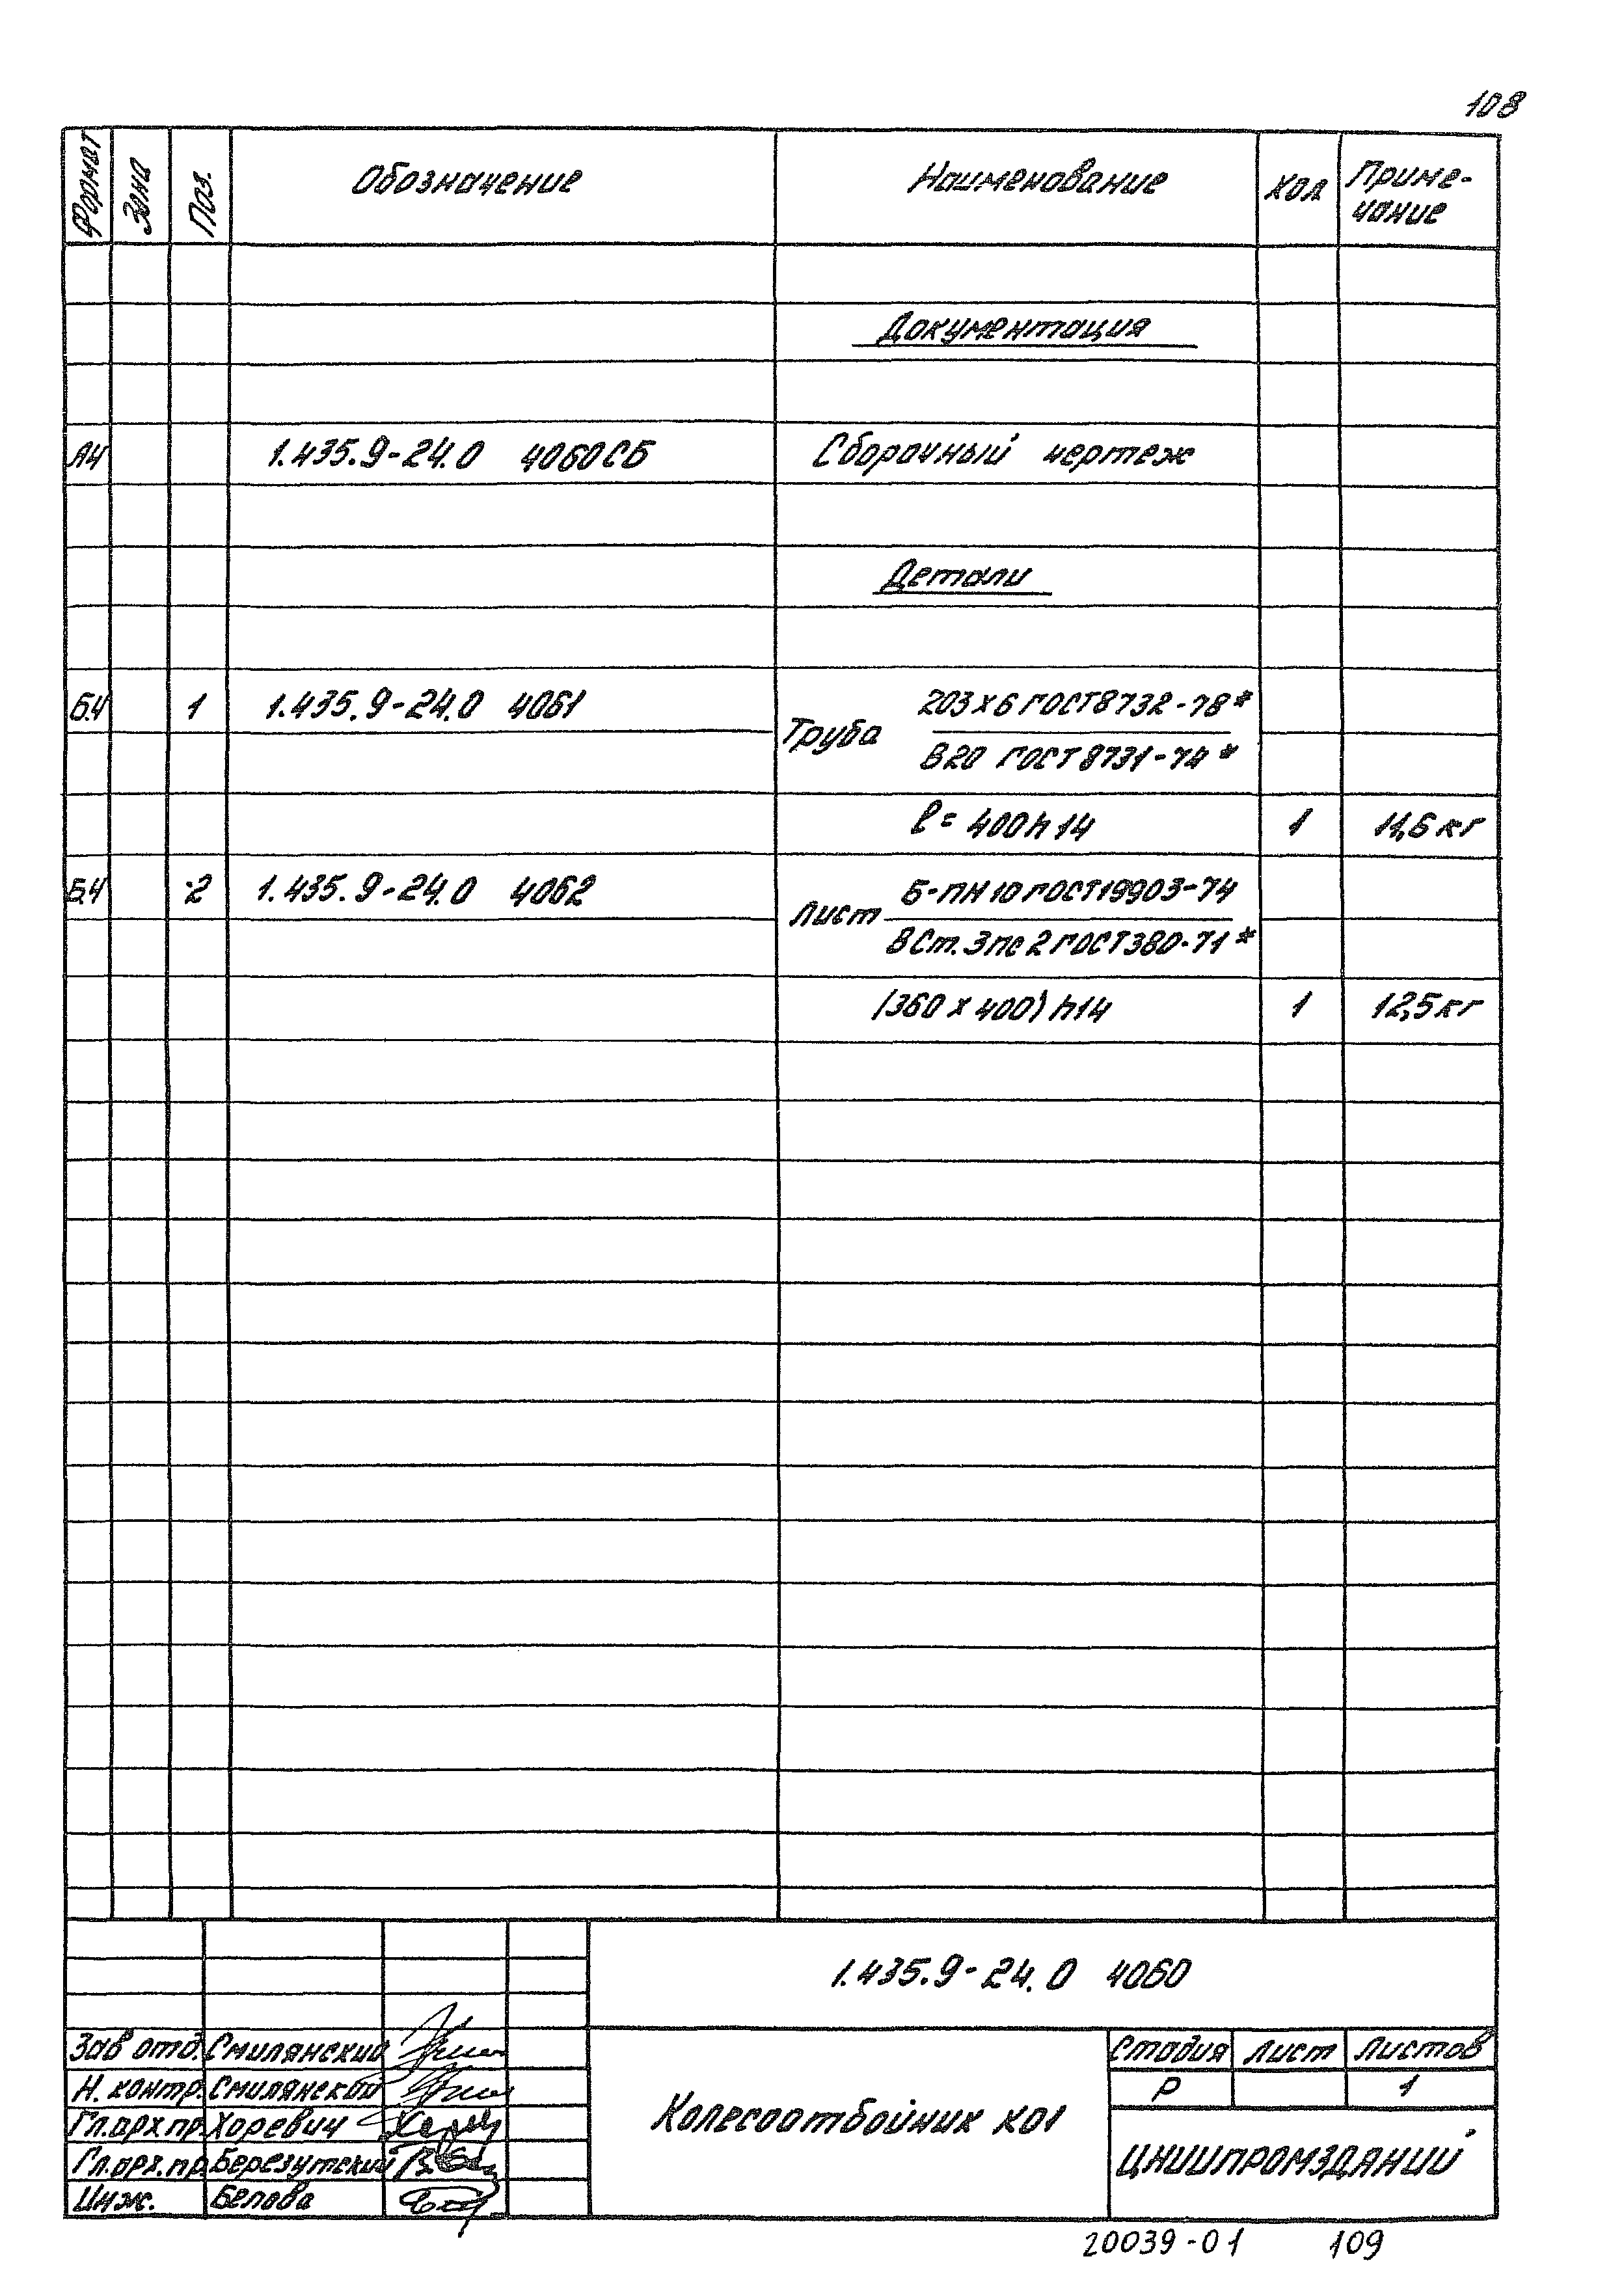 108
Формат Зона Поз. Обозначение Наименование Кол Приме-
чание
Документация
А4 1.435.9-24.0 4060СБ Сборочный чертеж
Детали
Б.4 1 1.435.9-24.0 4061 Труба 203х6 ГОСТ 8732-78*
В20 ГОСТ 8731-74*
ℓ= 400h14 1 11,6 кг
Б.4 2 1.435.9-24.0 4062 Лист Б-ПН 10 ГОСТ 19903-74
ВСт.3пс2 ГОСТ 380-71*
(360 х 400) h14 1 12,5 кг
1.435.9-24.0 4060
Зав отд. Смилянский
Н. контр. Смилянский
Гл.арх пр. Хоревич
Гл.арх.пр. Березутский
Инж. Белова
Колесоотбойник КО1
Стадия Лист Листов
Р 1
ЦНИИПРОМЗДАНИЙ
20039-01 109